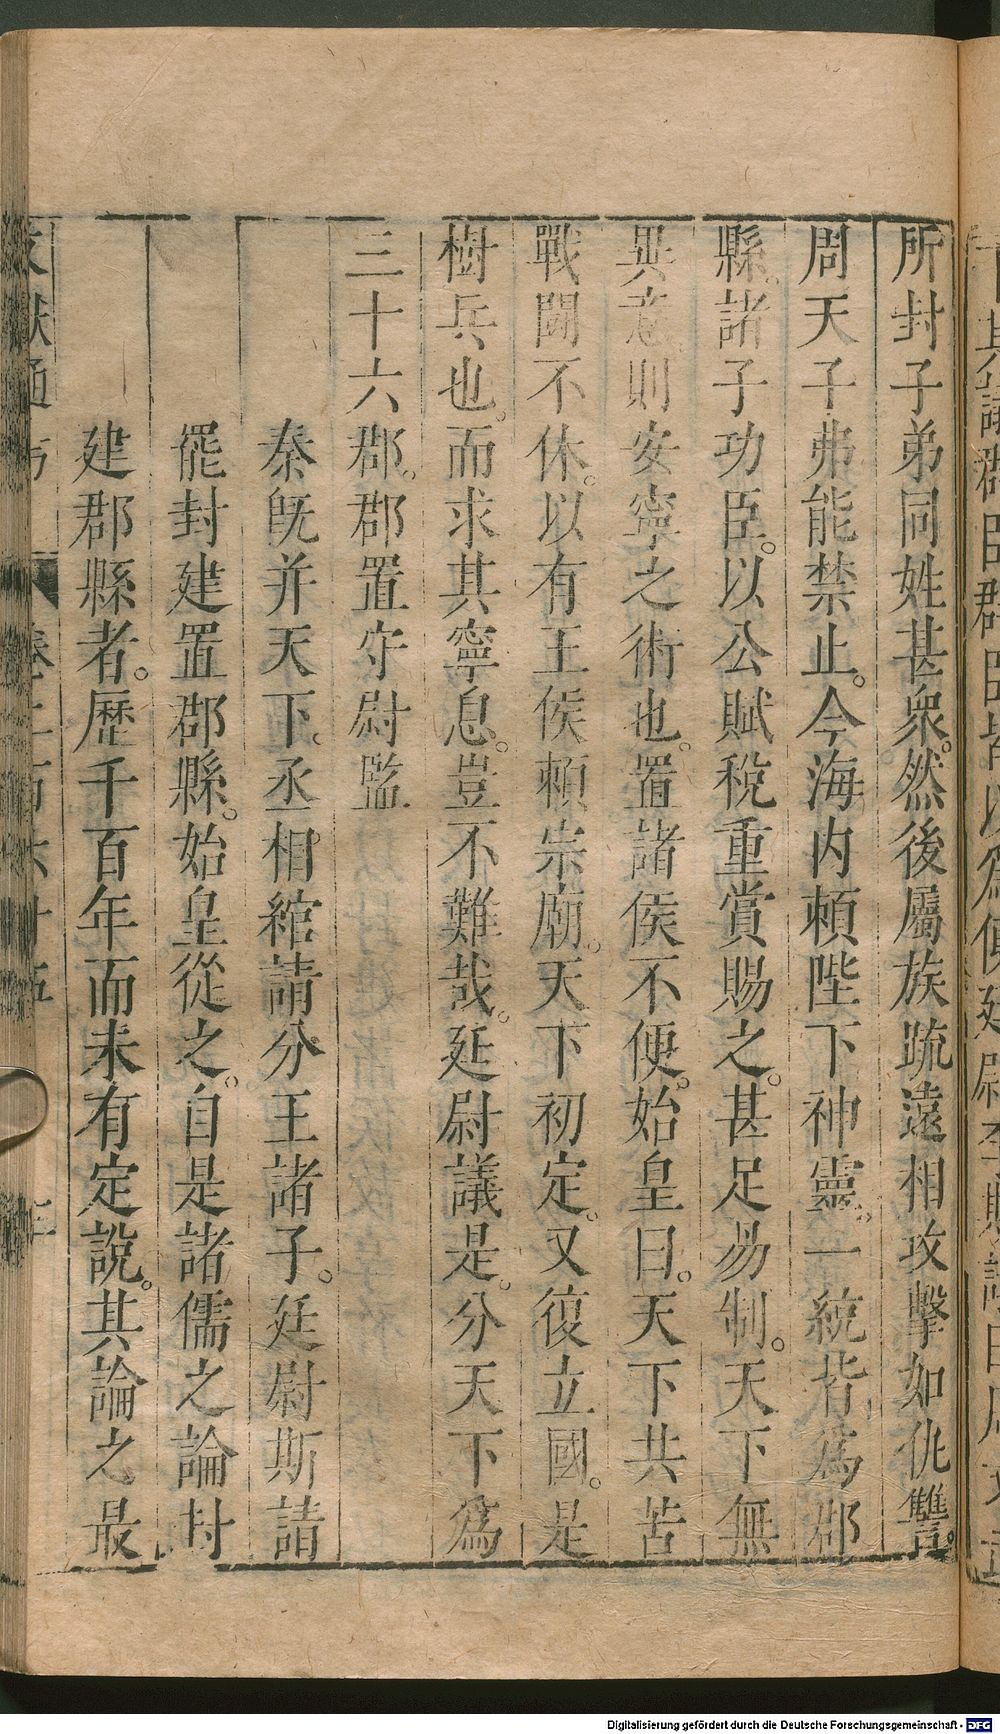 所封子弟同姓甚衆。然後屬族疏遠相攻擊如仇讐。
周天子弗能禁止。今海内頼陛下神靈。一統皆爲郡
縣。諸子功臣。以公賦稅重賞賜之。甚足易制。天下無
異意則安寧之術也。置諸侯不便。始皇曰。天下共苦
戰鬪不休。以有王侯頼宗廟。天下初定。又復立國。是
樹兵也。而求其寧息。豈不難哉。延尉議是。分天下爲
三十六郡。郡置守尉監
秦旣并天下。丞相綰請分王諸子。廷尉斯請
罷封建置郡縣。始皇從之。自是諸儒之論封
建郡縣者。歷千百年而未有定說。其論之最
文獻通考 卷二百六十五
Digitalisierung gefördert durch die Deutsche Forschungsgemeinschaft - DFG